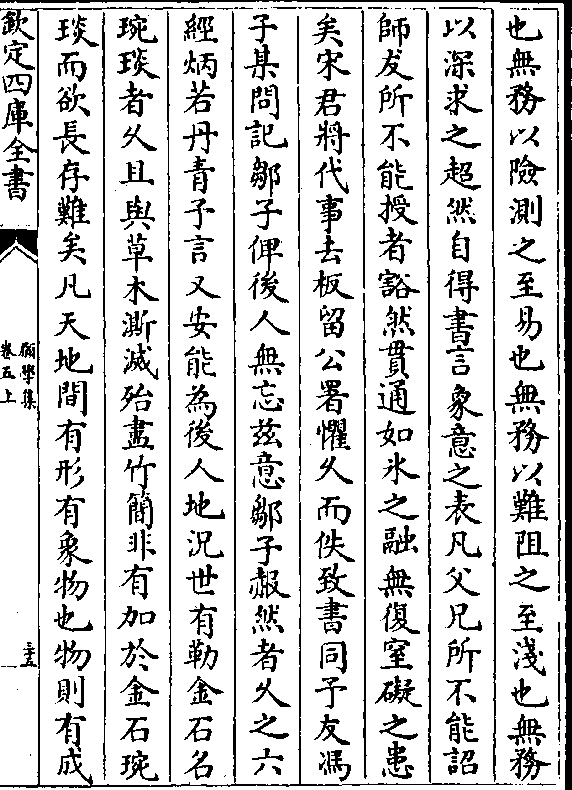 也無務以險測之至易也無務以難阻之至淺也無務
以深求之超然自得書言象意之表凡父兄所不能詔
師友所不能授者豁然貫通如氷之融無復窒礙之患
矣宋君將代事去板留公署懼久而佚致書同予友馮
子某問記鄒子俾後人無忘兹意鄒子赧然者久之六
經炳若丹青予言又安能為後人地況世有勒金石名
琬琰者久且與草木澌滅殆盡竹簡非有加於金石琬
琰而欲長存難矣凡天地間有形有象物也物則有成
欽定四庫全書
願學集
卷五上
三五